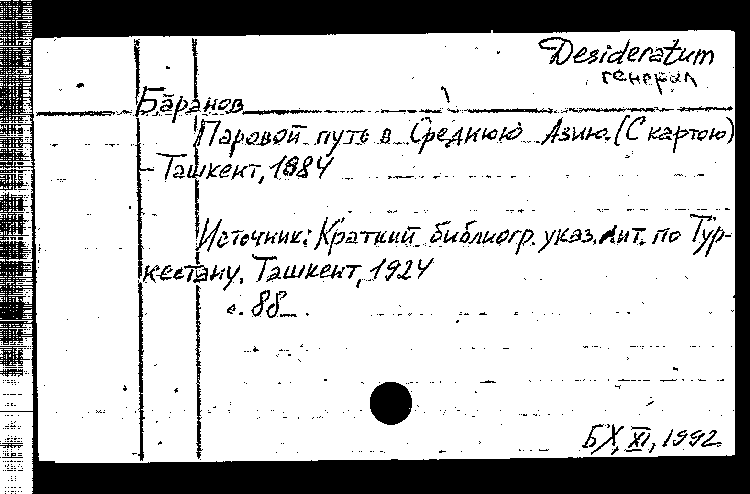 Desideratum
генерал
Баранов
Паровой путь в Среднюю Азию. (С картою)
– Ташкент, 1884
Источник: Краткий библиогр. указ. лит. по Тур-
кестану. Ташкент, 1924
с. 88
БХ, XI, 1992